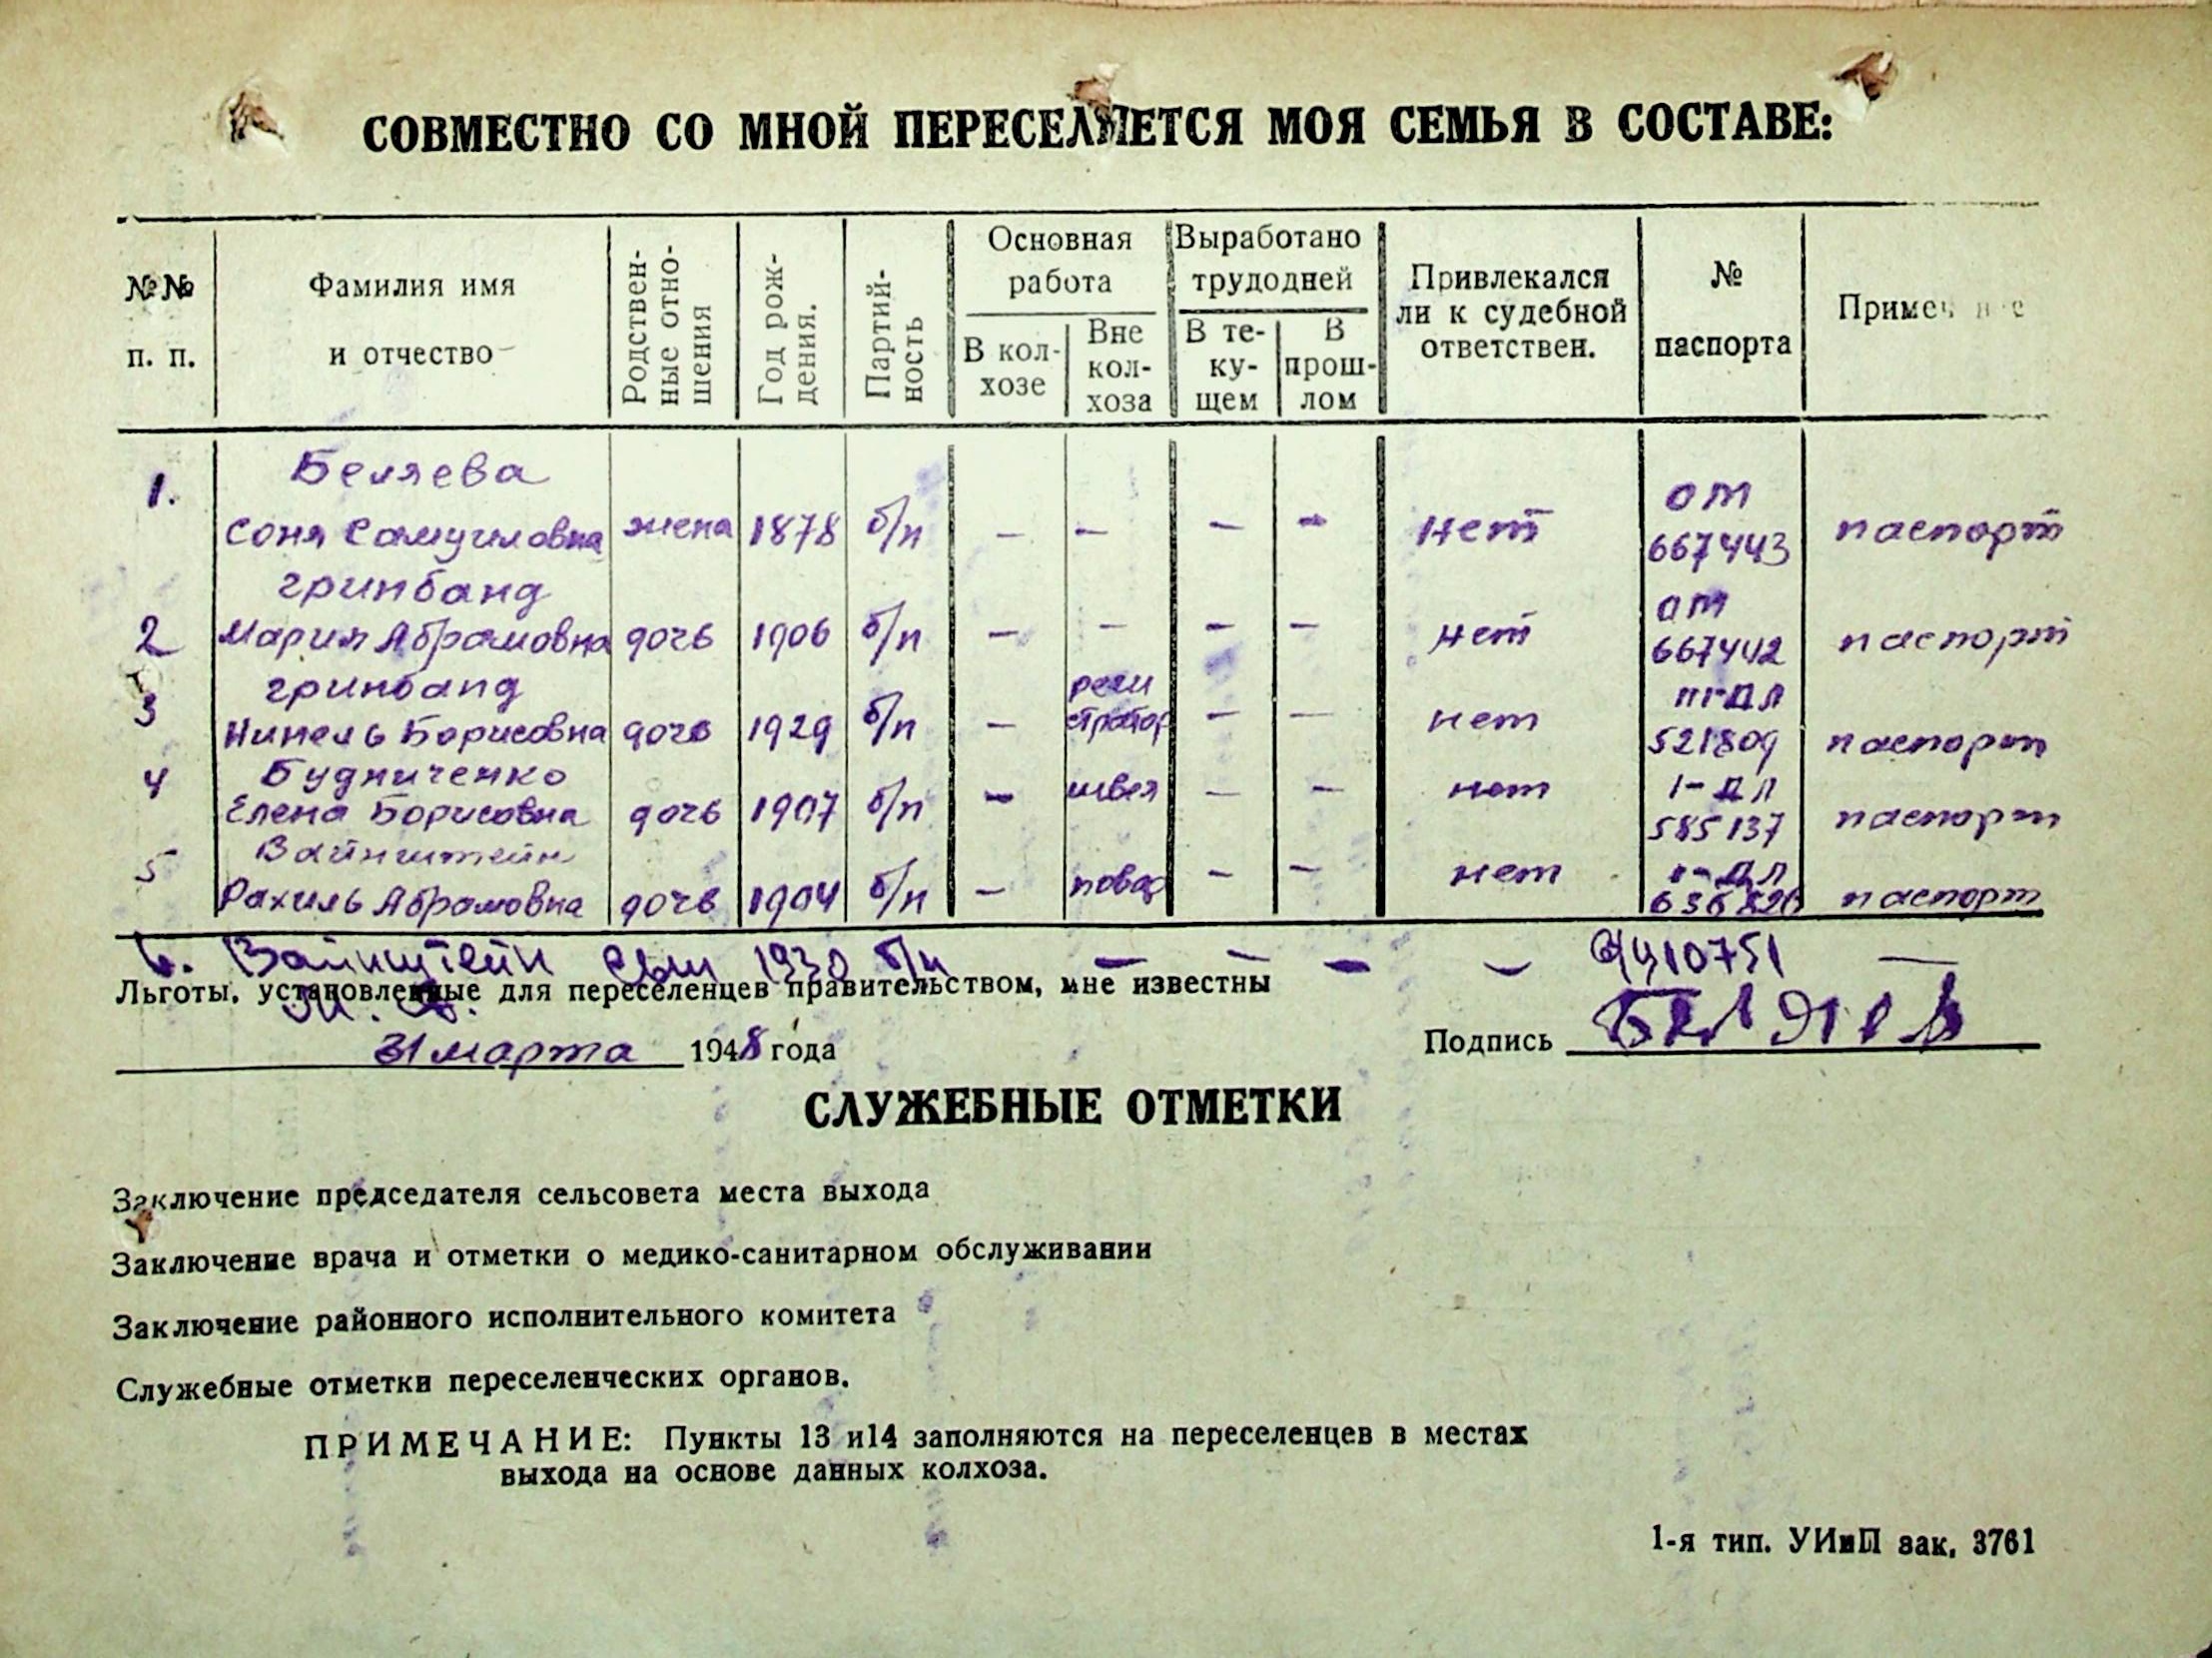 СОВМЕСТНО СО МНОЙ ПЕРЕСЕЛЯЕТСЯ МОЯ СЕМЬЯ В СОСТАВЕ:
№№ п. п. Фамилия имя и отчество Родствен- ные отно- шения Год рож- дения. Партий- ность Основная работа В кол- хозе Вне кол- хоза Выработано трудодней В те- ку- щем В прош- лом Привлекался ли к судебной ответствен. № паспорта
1. Беляева Соня Самуиловна жена 1878 б/п — — — — нет от 667443 паспорт
2 Гринбанд Мария Абрамовна дочь 1906 б/п — — — — нет от 667442 паспорт
3 Гринбанд Нинель Борисовна дочь 1929 б/п — реги стратор — — нет 521809 паспорт
4 Будниченко Елена Борисовна дочь 1907 б/п — швея — — нет I-дл 585137 паспорт
5 Вайнштейн Рахиль Абрамовна дочь 1904 б/п — повар — — нет паспорт
6. Вайнштейн сын 1930 б/п — — — —
Льготы, установленные для переселенцев правительством, мне известны
31 марта 1948 года
Подпись Беляев
СЛУЖЕБНЫЕ ОТМЕТКИ
Заключение председателя сельсовета места выхода
Заключение врача и отметки о медико-санитарном обслуживании
Заключение районного исполнительного комитета
Служебные отметки переселенческих органов.
ПРИМЕЧАНИЕ: Пункты 13 и14 заполняются на переселенцев в местах
выхода на основе данных колхоза.
1-я тип. УИиП зак, 3761